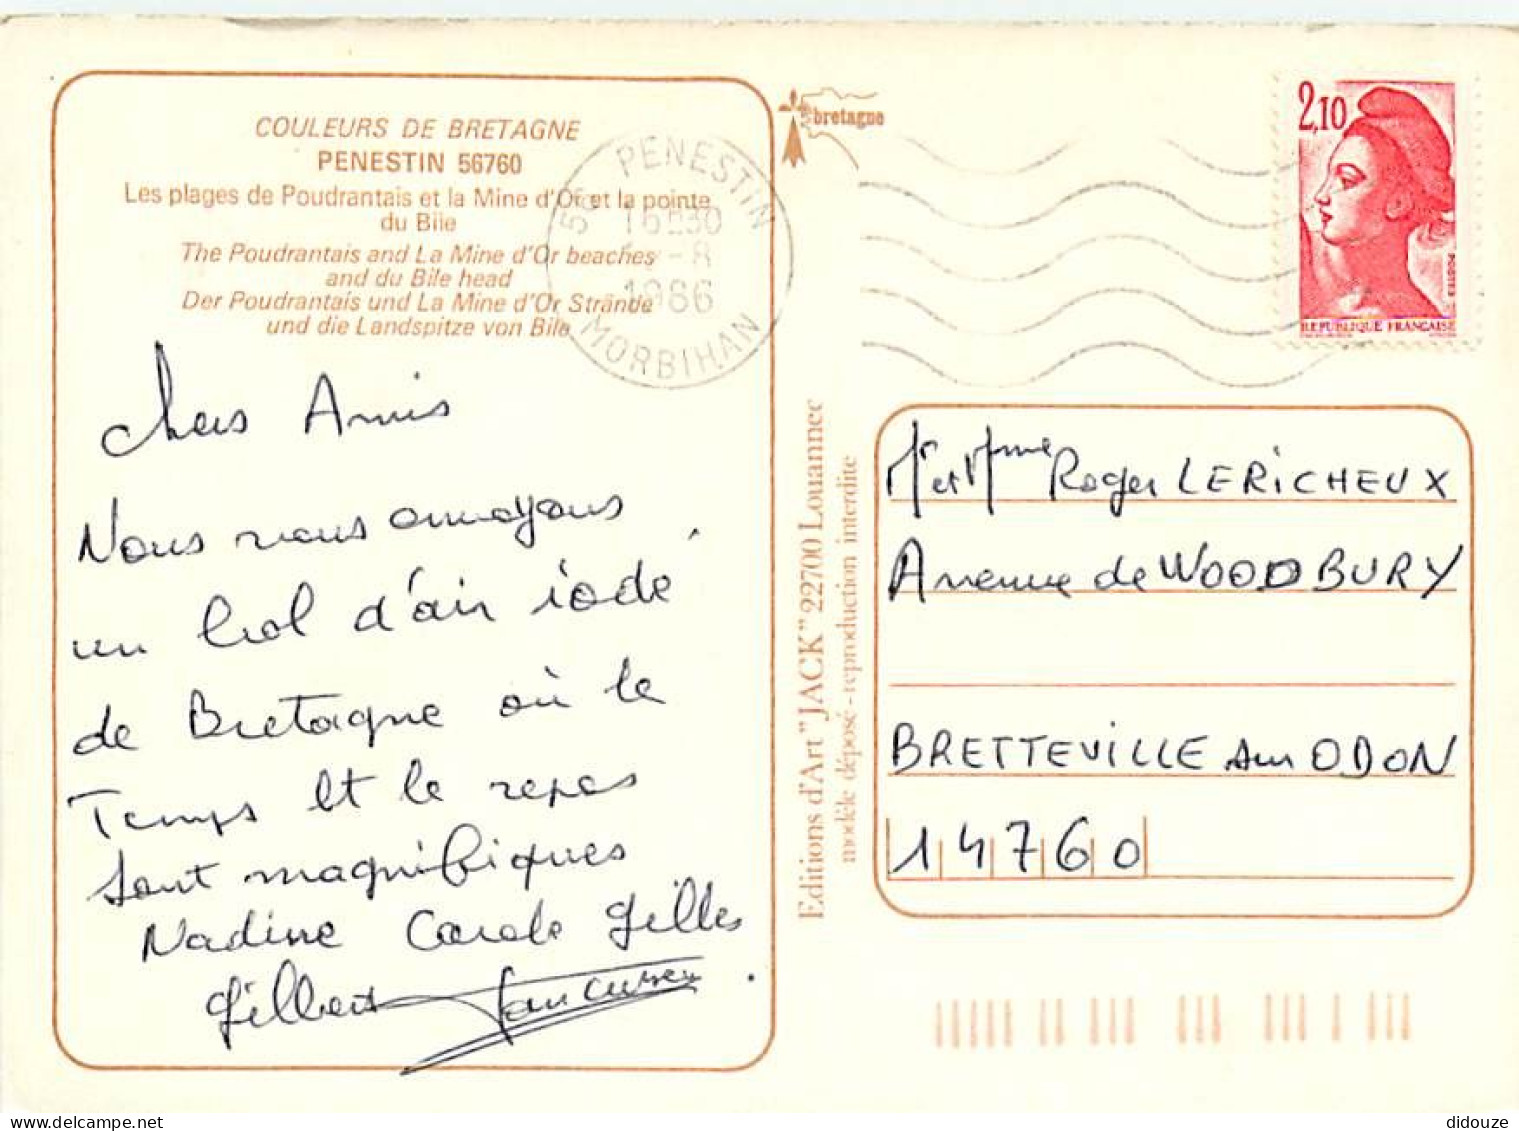 COULEURS DE BRETAGNE
PENESTIN 56760
Les plages de Poudrantais et la Mine d'Or et la pointe
du Bile
The Poudrantais and La Mine d'Or beaches
and du Bile head
Der Poudrantais und La Mine d'Or Strände
und die Landspitze von Bile
bretagne
PENESTIN
16H30
-8
1986
MORBIHAN
2,10
POSTES
REPUBLIQUE FRANÇAISE
Chers Amis
Nous vous envoyons
un bol d'air iodé
de Bretagne où le
Temps et le repas
sont magnifiques
Nadine Carole Gilles
Gilbert
Editions d'Art "JACK" 22700 Louannec
modèle déposé - reproduction interdite
Mr et Mme Roger LERICHEUX
Avenue de WOODBURY
BRETTEVILLE sur ODON
14760
didouze